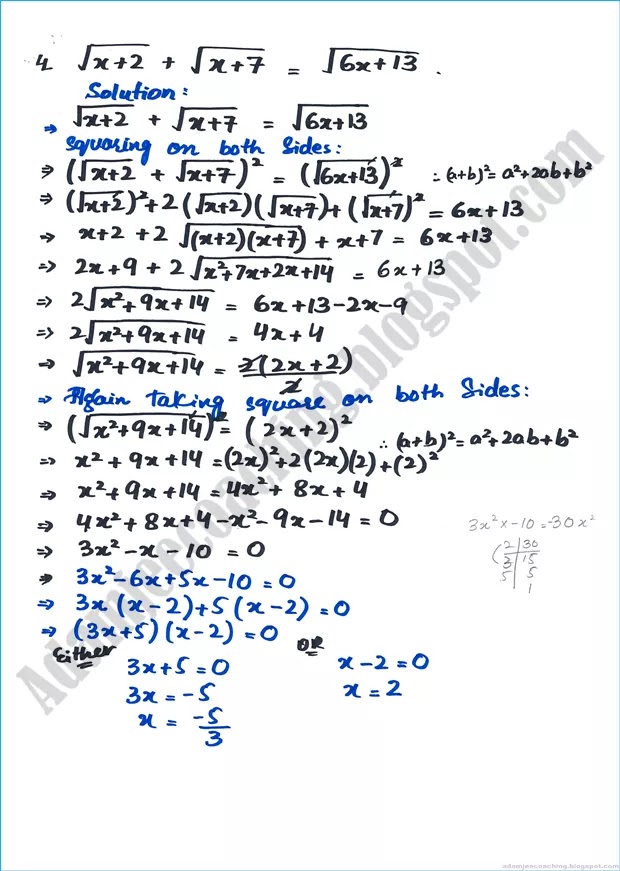 4. √x+2 + √x+7 = √6x+13 .
Solution:
⇒ √x+2 + √x+7 = √6x+13
Squaring on both Sides:
⇒ (√x+2 + √x+7)² = (√6x+13)² ∴ (a+b)² = a²+2ab+b²
⇒ (√x+2)²+2(√x+2)(√x+7)+(√x+7)² = 6x+13
⇒ x+2 + 2√(x+2)(x+7) + x+7 = 6x+13
⇒ 2x+9 + 2√x²+7x+2x+14 = 6x+13
⇒ 2√x²+9x+14 = 6x+13-2x-9
⇒ 2√x²+9x+14 = 4x+4
⇒ √x²+9x+14 = 2(2x+2)/2
⇒ Again taking square on both Sides:
⇒ (√x²+9x+14)² = (2x+2)²
∴ (a+b)² = a²+2ab+b²
⇒ x²+9x+14 = (2x)²+2(2x)(2)+(2)²
⇒ x²+9x+14 = 4x²+8x+4
⇒ 4x²+8x+4-x²-9x-14 = 0
⇒ 3x²-x-10 = 0
⇒ 3x²-6x+5x-10 = 0
⇒ 3x(x-2)+5(x-2) = 0
⇒ (3x+5)(x-2) = 0
3x² x -10 = -30x²
2 | 30
3 | 15
5 | 5
1
Either OR
3x+5 = 0 x-2 = 0
3x = -5 x = 2
x = -5/3
Adamjeecoaching.blogspot.com
adamjeecoaching.blogspot.com